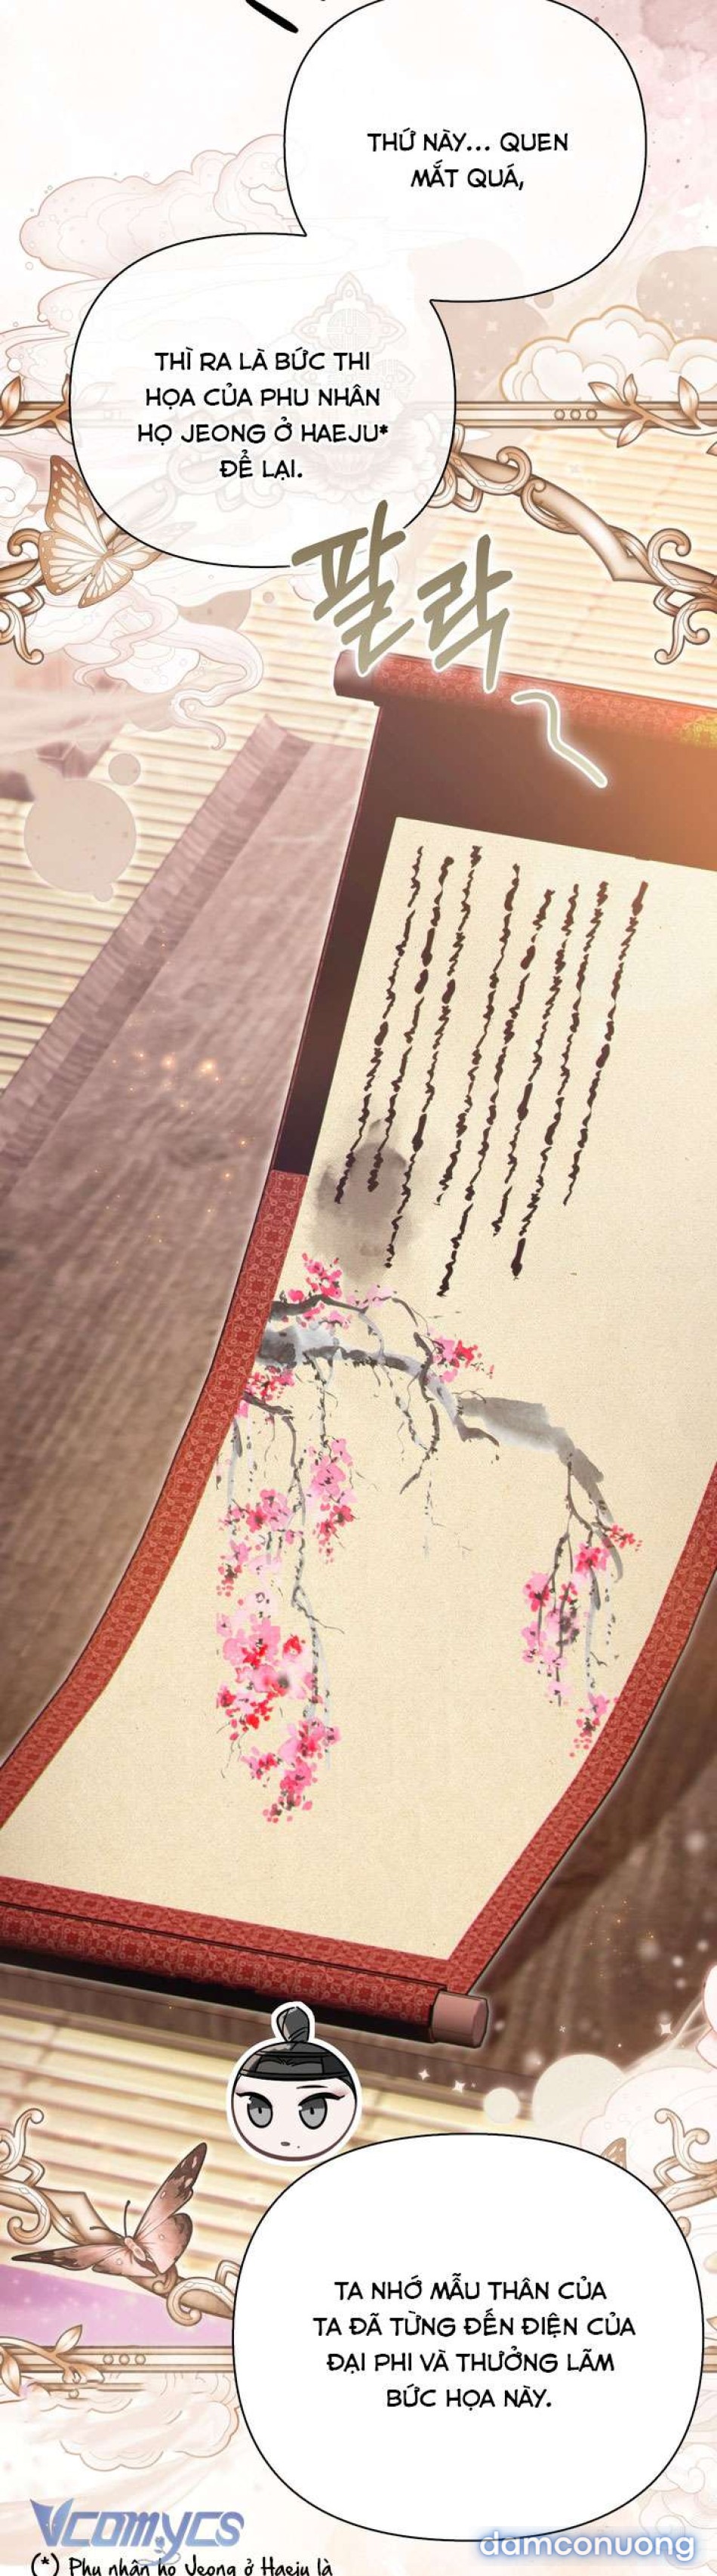 THỨ NÀY... QUEN
MẮT QUÁ,
THÌ RA LÀ BỨC THI
HỌA CỦA PHU NHÂN
HỌ JEONG Ở HAEJU*
ĐỂ LẠI.
팔락
TA NHỚ MẪU THÂN CỦA
TA ĐÃ TỪNG ĐẾN ĐIỆN CỦA
ĐẠI PHI VÀ THƯỞNG LÃM
BỨC HỌA NÀY.
Vcomycs
damconuong
(*) Phu nhân họ Jeong ở Haeju là